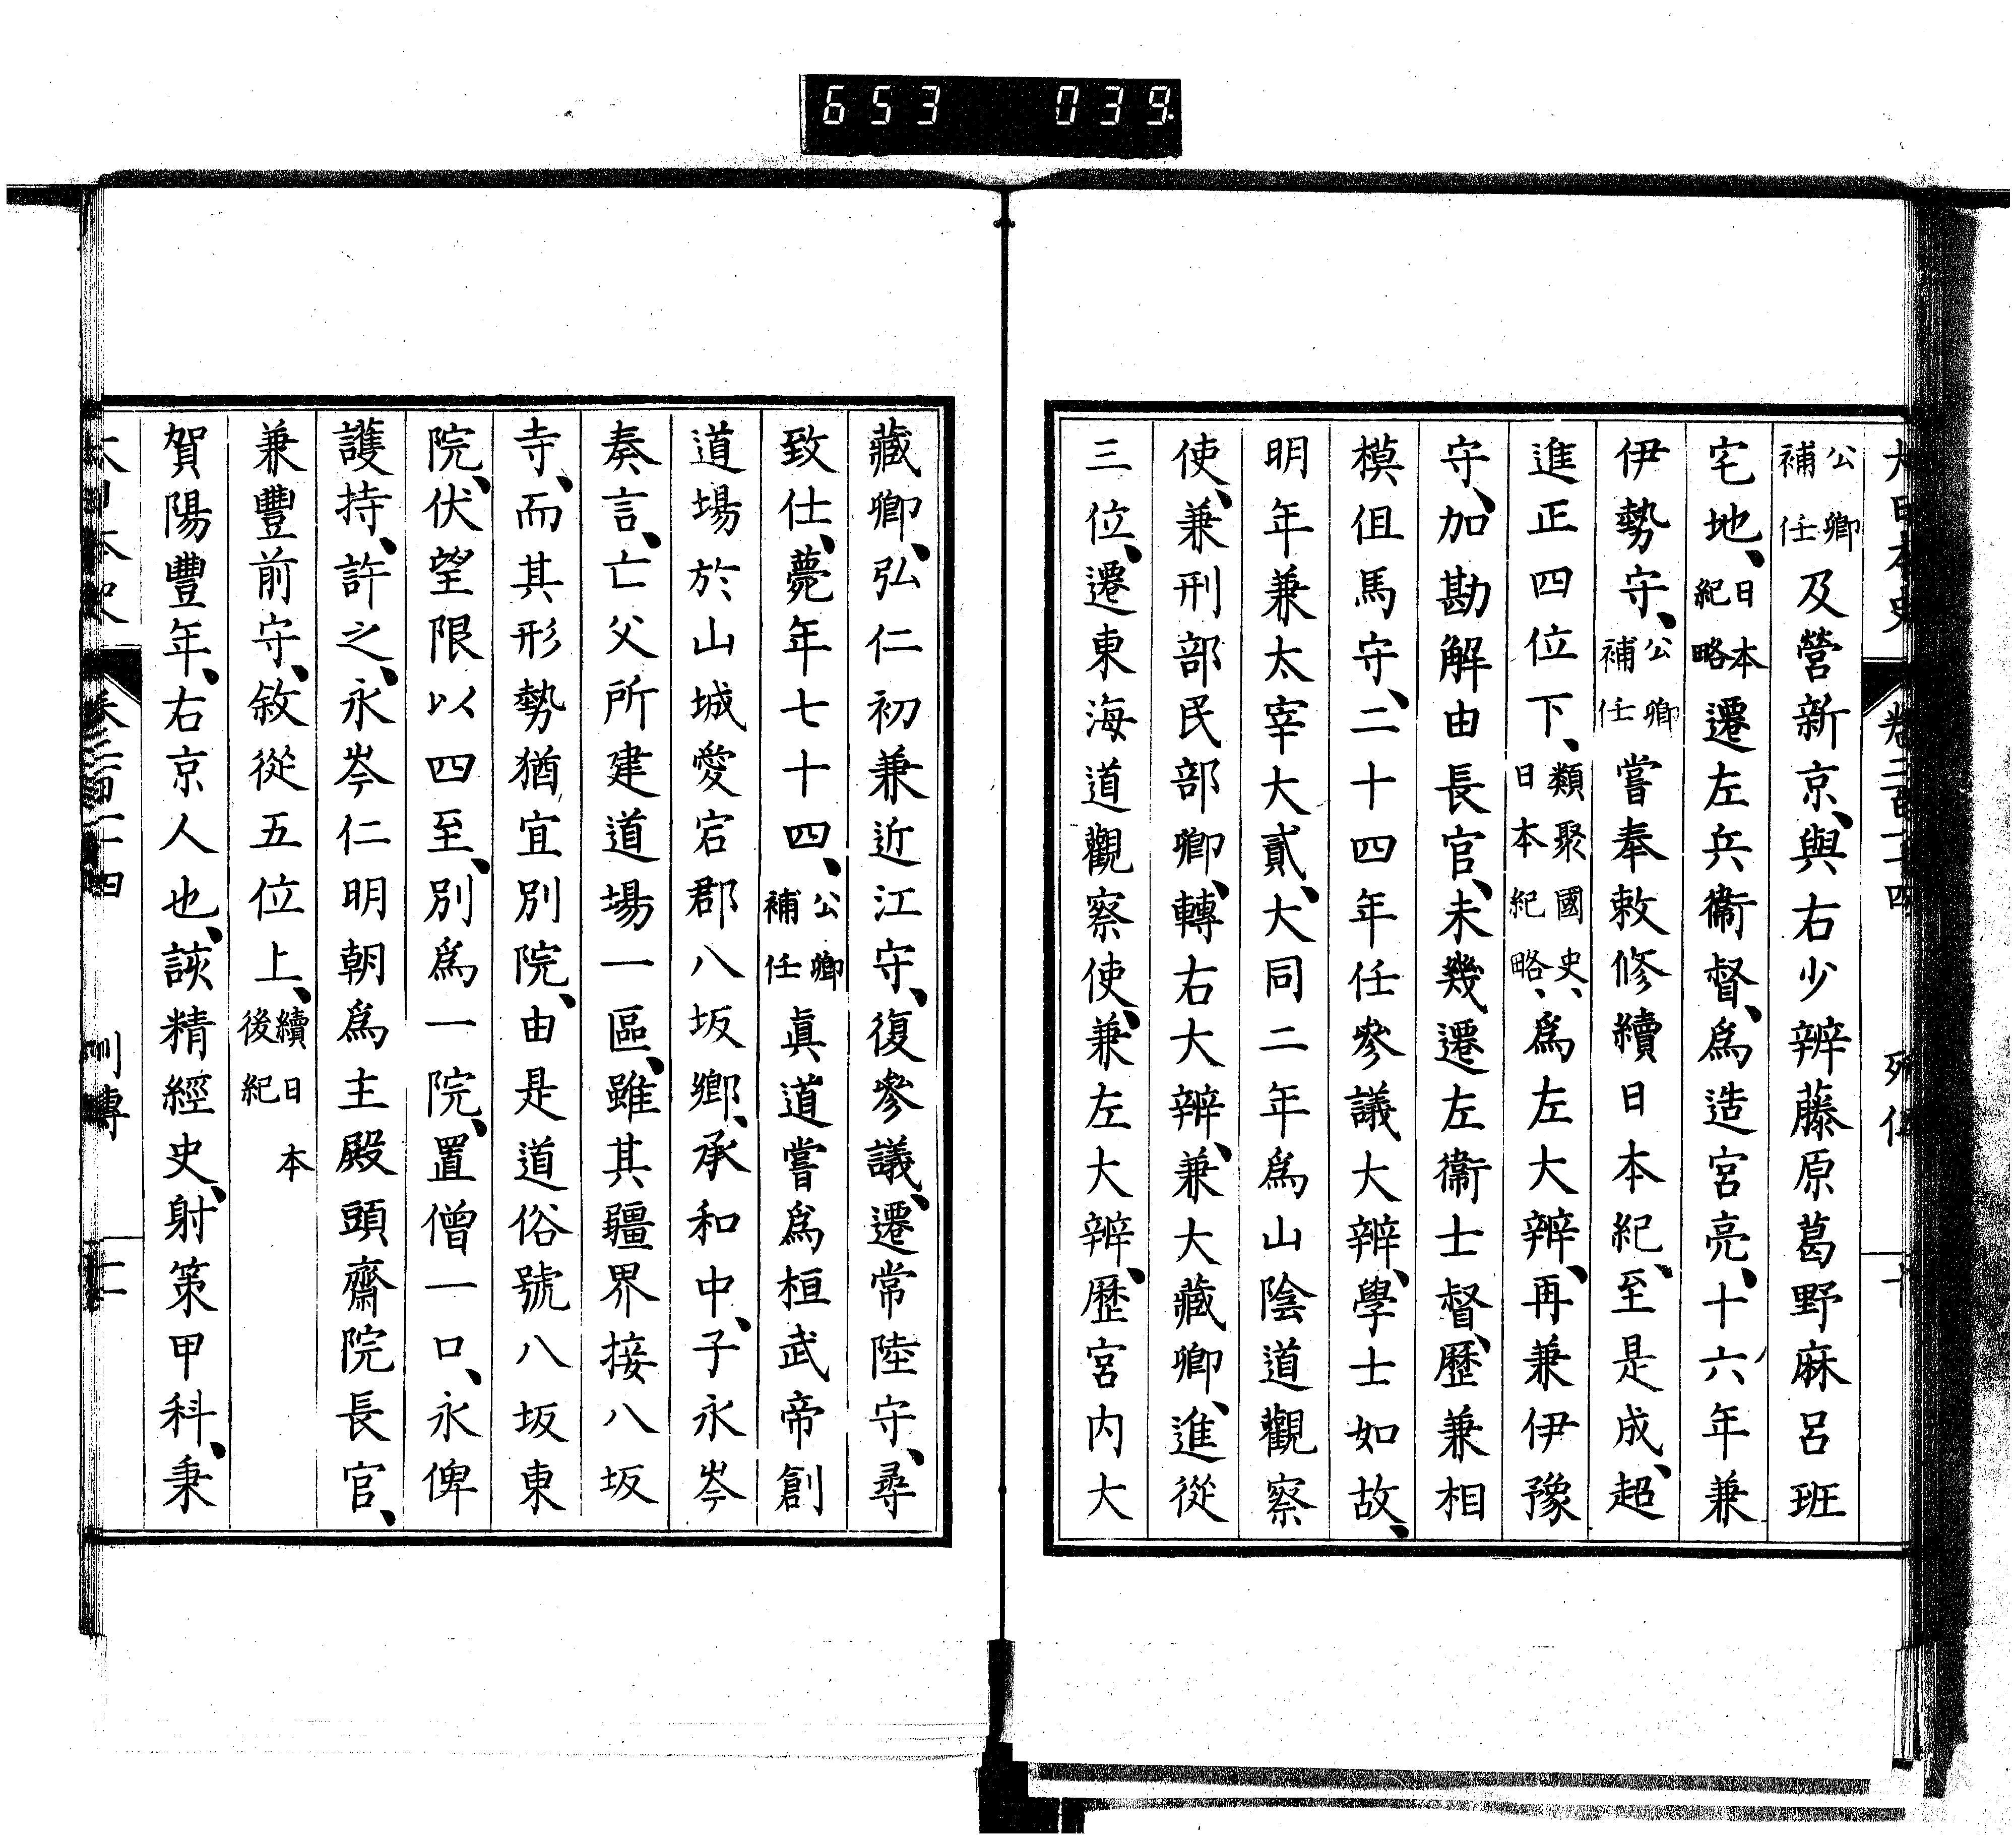 653 039
大日本史 卷二百一十四 列傳 十
公卿補任及營新京、與右少辨藤原葛野麻呂班
宅地、日本紀略遷左兵衞督、爲造宮亮、十六年兼
伊勢守、公卿補任嘗奉敕修續日本紀、至是成、超
進正四位下、類聚國史、日本紀略、爲左大辨、再兼伊豫
守、加勘解由長官、未幾遷左衞士督、歷兼相
模伹馬守、二十四年任參議大辨、學士如故、
明年兼太宰大貳、大同二年爲山陰道觀察
使、兼刑部民部卿、轉右大辨、兼大藏卿、進從
三位、遷東海道觀察使、兼左大辨、歷宮内大
藏卿、弘仁初兼近江守、復參議、遷常陸守、尋
致仕、薨年七十四、公卿補任眞道嘗爲桓武帝創
道場於山城愛宕郡八坂鄉、承和中、子永岑
奏言、亡父所建道場一區、雖其疆界接八坂
寺、而其形勢猶宜別院、由是道俗號八坂東
院、伏望限以四至、別爲一院、置僧一口、永俾
護持、許之、永岑仁明朝爲主殿頭齋院長官、
兼豐前守、敘從五位上、續日本後紀
賀陽豐年、右京人也、該精經史、射策甲科、秉
大日本史 卷二百一十四 列傳 十一